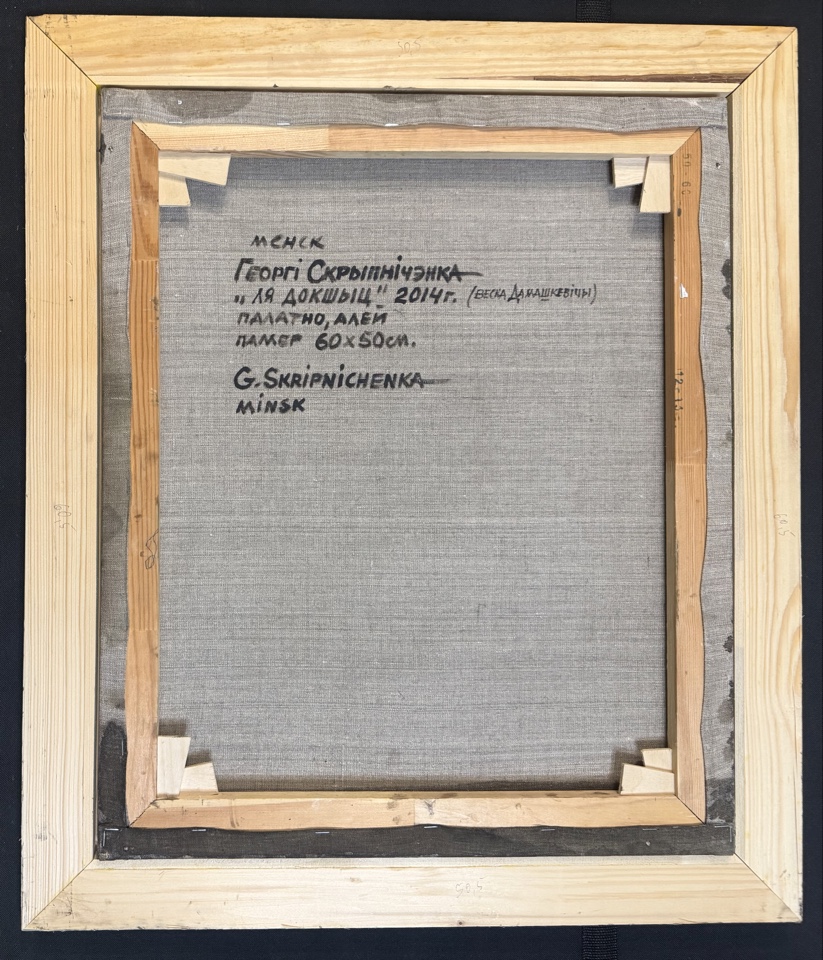 МЕНСК
ГЕОРГІ СКРЫПНІЧЭНКА
„ЛЯ ДОКШЫЦ" 2014г. (ВЕСКА ДАЛАШКЕВІЧЫ)
ПАЛАТНО, АЛЕЙ
ПАМЕР 60х50см.
G. SKRIPNICHENKA
MINSK
50 60